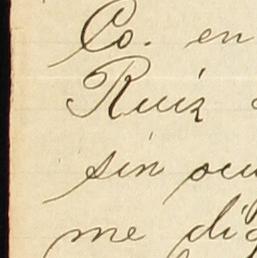 Co. en
Ruiz
sin
me